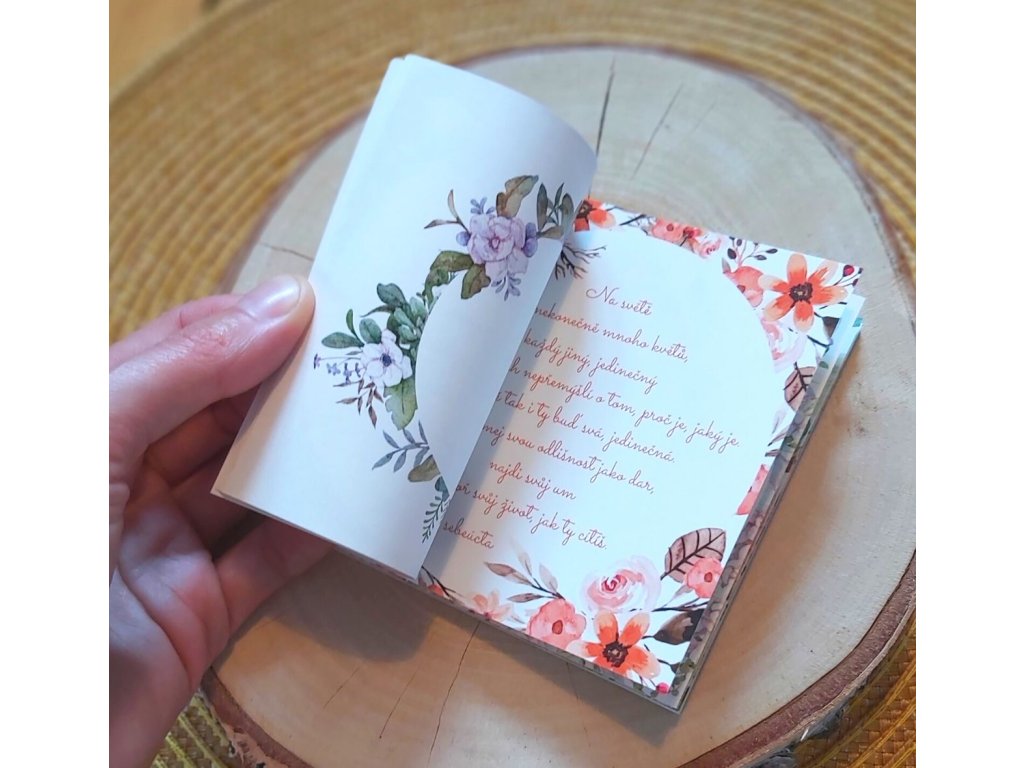 Na světě
nekonečně mnoho květů,
každý jiný, jedinečný
nepřemýšlí o tom, proč je, jaký je
tak i ty buď svá, jedinečná.
svou odlišnost jako dar,
najdi svůj um
svůj život, jak ty cítíš.
sebeúcta